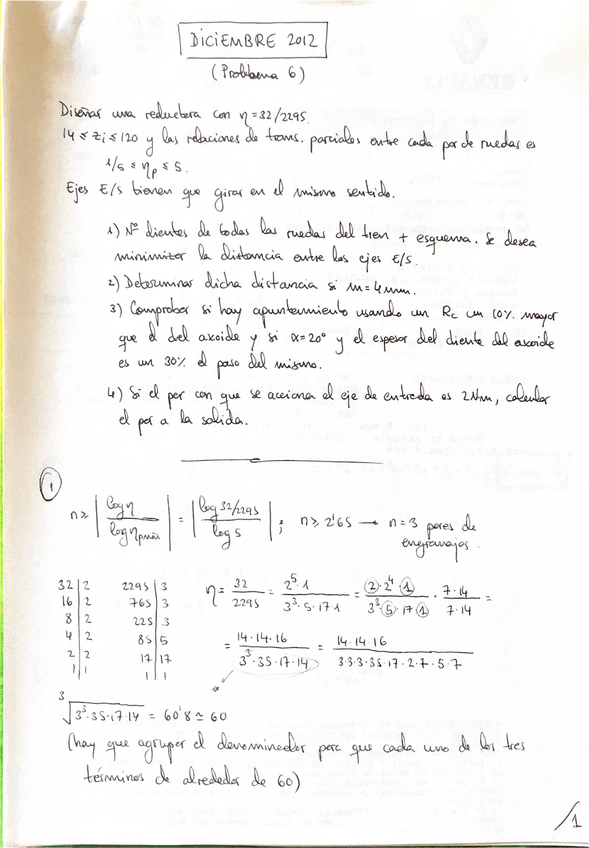 DICIEMBRE 2012
(Problema 6)
Diseñar una reductora con η = 32/2295.
14 ≤ zi ≤ 120 y las relaciones de trans. parciales entre cada par de ruedas es
1/5 ≤ ηp ≤ 5.
Ejes E/S tienen que girar en el mismo sentido.
1) Nº dientes de todas las ruedas del tren + esquema. Se desea
minimizar la distancia entre los ejes E/S.
2) Determinar dicha distancia si m = 4 mm.
3) Comprobar si hay apuntamiento usando un Rc un 10% mayor
que el del axoide y si α = 20° y el espesor del diente del axoide
es un 30% el paso del mismo.
4) Si el par con que se acciona el eje de entrada es 2Nm, calcular
el par a la salida.
1
n ≥ |log η / log ηpmáx| = |log 32/2295 / log 5| ; n ≥ 2'65 → n = 3 pares de
engranajes.
32 | 2 2295 | 3
16 | 2 765 | 3
8 | 2 225 | 3
4 | 2 85 | 5
2 | 2 17 | 17
1 | 1 1 | 1
η = 32/2295 = 2⁵·1 / 3³·5·17·1 = 2·2⁴·1 / 3³·5·17·1 · 7·14 / 7·14 =
= 14·14·16 / 3³·35·17·14 = 14·14·16 / 3·3·3·35·17·2·7·5·7
³√3³·35·17·14 = 60'8 ≃ 60
(hay que agrupar el denominador para que cada uno de los tres
términos de alrededor de 60)
/1